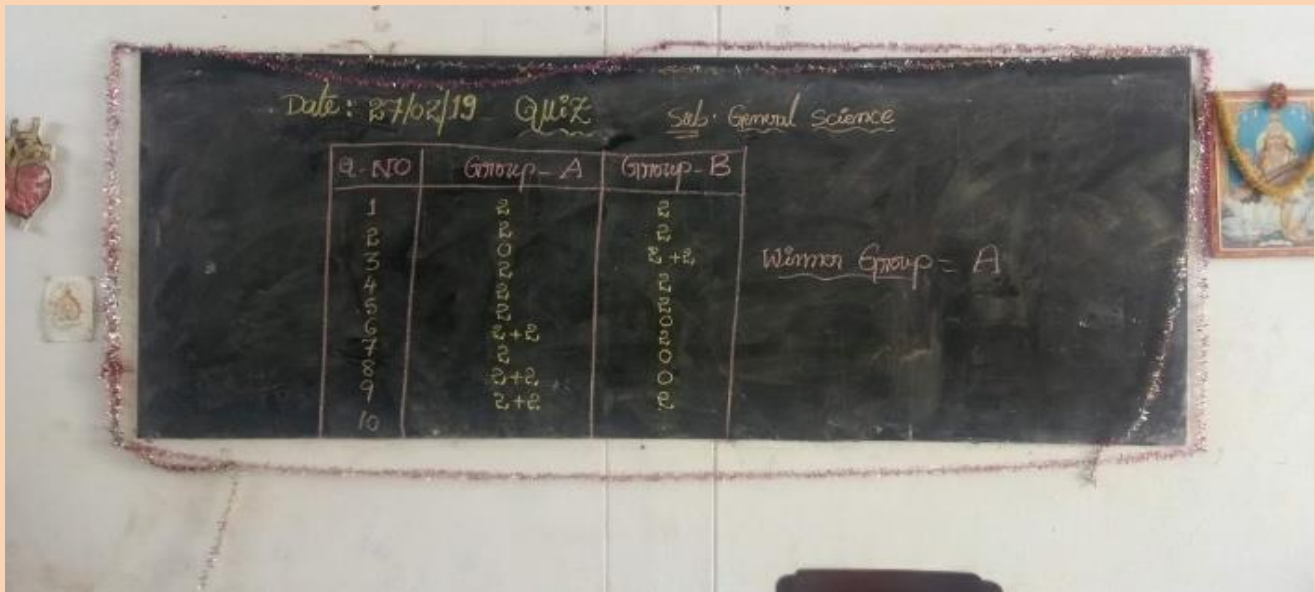 Date: 27/02/19 QUIZ Sub: General Science
Q.NO Group-A Group-B
1 2 2
2 2 2
3 0 2+2
4 2 2
5 2 2
6 2 0
7 2+2 2
8 2 0
9 2+2 0
10 2+2 2
Winner Group = A